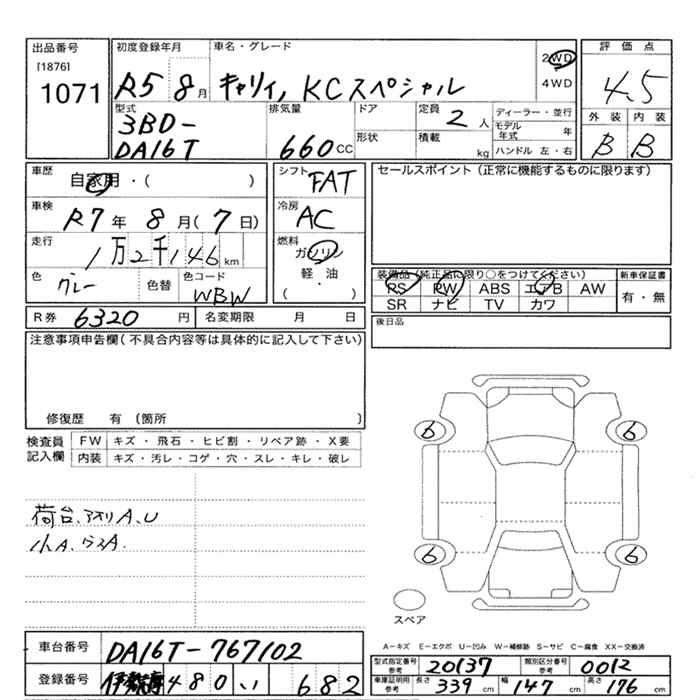 出品番号
[1876]
1071
初度登録年月
R5 8月
車名・グレード
キャリィ, KCスペシャル
2WD
4WD
評価点
4.5
外装 内装
B B
型式
3BD-
DA16T
排気量
660 CC
ドア
形状
定員
2 人
積載
kg
ディーラー・並行
モデル年式 年
ハンドル 左・右
車歴
自家用・( )
車検
R7年 8月(7日)
走行
1万2千146km
色
グレー
色替
色コード
WBW
シフト
FAT
冷房
AC
燃料
ガソリン
軽・油
( )
セールスポイント(正常に機能するものに限ります)
装備品(純正品に限り○をつけてください)
PS PW ABS エアB AW
SR ナビ TV カワ
新車保証書
有・無
R券 6320円
名変期限 月 日
後日品
注意事項申告欄(不具合内容等は具体的に記入して下さい)
修復歴 有(箇所 )
検査員
記入欄
FW キズ・飛石・ヒビ割・リペア跡・X要
内装 キズ・汚レ・コゲ・穴・スレ・キレ・破レ
荷台、アオリA、U
小A、ウスA.
6 6
6 6
スペア
車台番号
DA16T-767102
登録番号
480 い 682
A-キズ E-エクボ U-凹み W-補修跡 S-サビ C-腐食 XX-交換済
型式指定番号参考 20137
類別区分番号参考 0012
車庫証明用参考 長さ 339 cm 幅 147 cm 高さ 176 cm